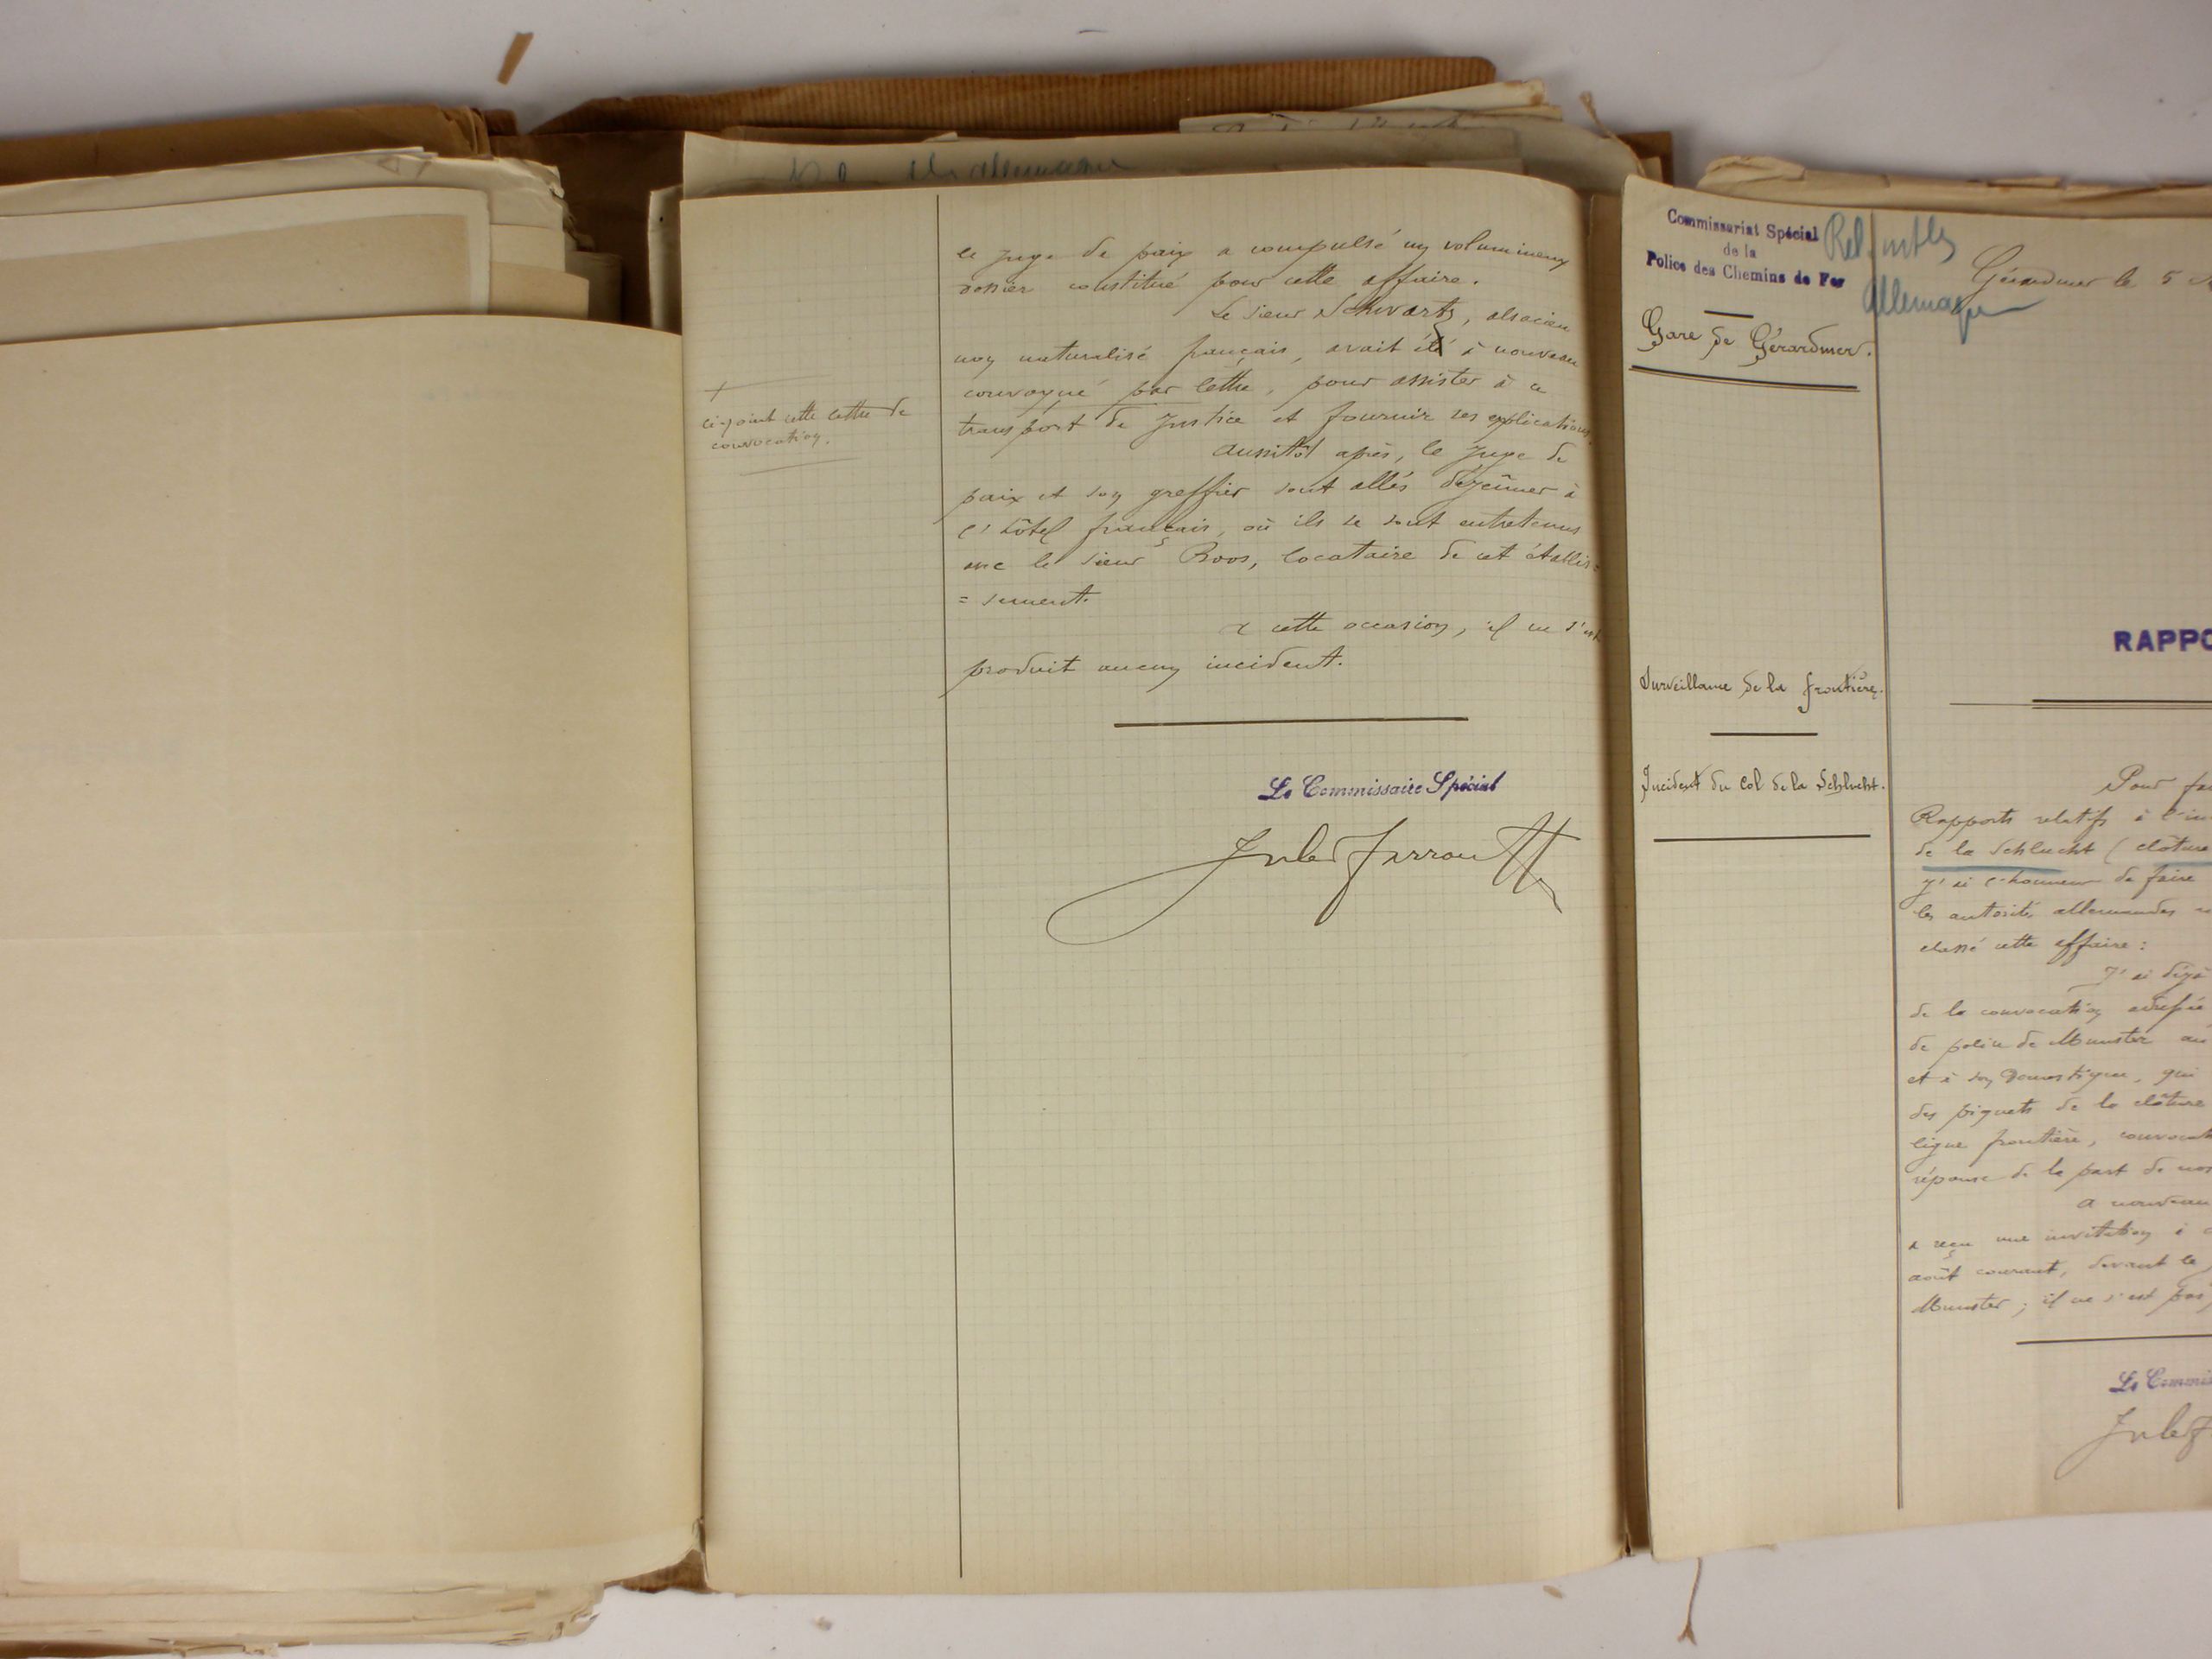 le juge de paix a compulsé un volumineux
dossier constitué pour cette affaire.
Le sieur Schwartz, alsacien
non naturalisé français, avait été à nouveau
convoqué par lettre, pour assister à ce
transport de Justice et fournir ses explications.
Aussitôt après, le Juge de
paix et son greffier sont allés déjeûner à
l'hôtel français, où ils se sont entretenus
avec le sieur Boos, locataire de cet établis=
=sement.
A cette occasion, il ne s'est
produit aucun incident.
+
ci-joint cette lettre de
convocation.
Le Commissaire Spécial
Commissariat Spécial
de la
Police des Chemins de Fer
Gare de Gérardmer.
Allemagne
Gérardmer le 5
RAPPO
Surveillance de la frontière.
Incident du Col de la Schlucht.
Pour fai
Rapports relatifs à l'in
de la Schlucht (clôture
j'ai l'honneur de faire
les autorités allemandes
classé cette affaire :
J'ai déjà
de la convocation adressée
de police de Munster au
et à son domestique, qui
des piquets de la clôture
ligne frontière, convocat
réponse de la part de nos
A nouveau
a reçu une invitation à
août courant, devant le
Munster ; il ne s'est pas
Le Commis